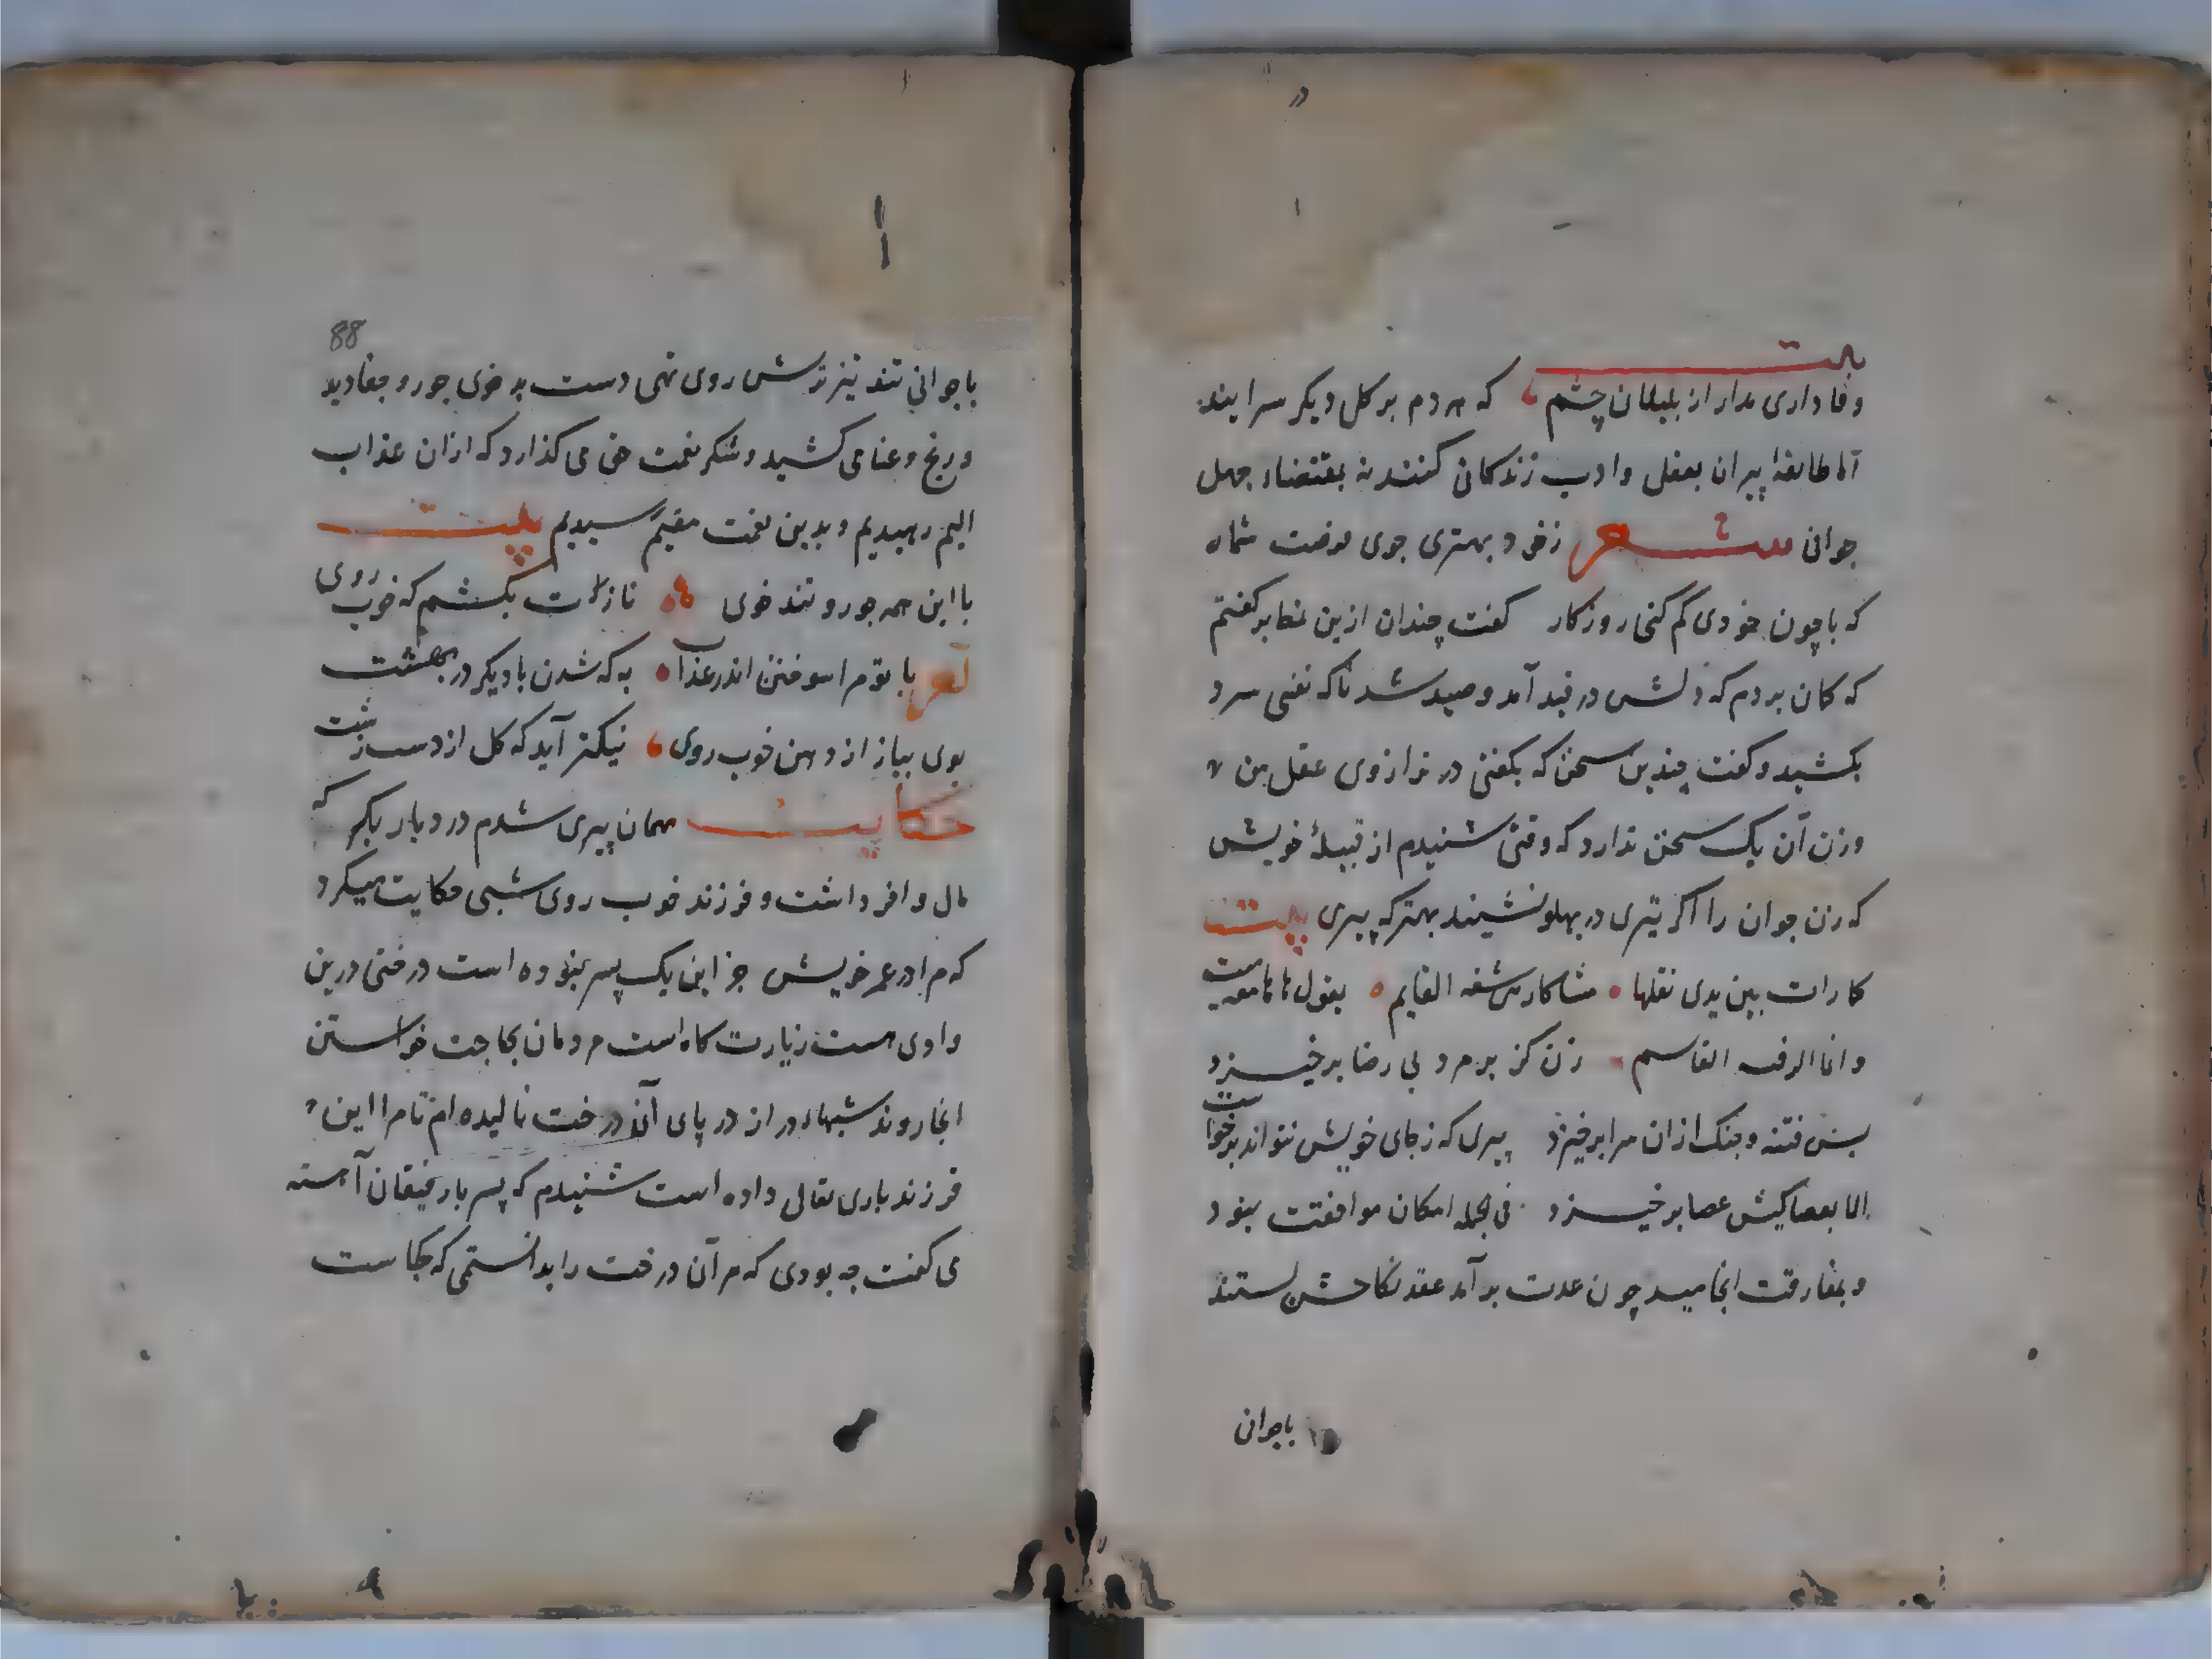 بیت
وفاداری مدار از بلبلان چشم که هردم بر کل دیکر سرایند
اما طایفهٔ پیران بعقل و ادب زندکانی کنند نه بمقتضاء جهل
جوانی شعر زخود بهتری جوی فرصت شمار
که با چون خودی کم کنی روزکار کفت چندان ازین نمط بر کفتم
که کمان بردم که دلش در قید آمد و صید شد ناکه نفسی سرد
بکشید و کفت چندین سخن که بکفتی در ترازوی عقل من
وزن آن یک سخن ندارد که وقتی شنیدم از قبیلهٔ خویش
که زن جوان را اکر تیری در پهلو نشیند بهتر که پیری بیت
بین یدی نقلها
زن کز بر مرد بی رضا برخیزد
بس فتنه و جنک ازان سرا برخیزد پیری که زجای خویش نتواند برخواست
الا بعصا کیش عصا برخیزد فی الجمله امکان موافقت نبود
و بمفارقت انجامید چون عدت برآمد عقد نکاحش بستند
باجوانی
88
باجوانی تند تیز ترش روی تهی دست بد خوی جور و جفا دید
و رنج و عنا می کشید و شکر نعمت حق می کذارد که ازان عذاب
الیم رهیدیم و بدین نعمت مقیم رسیدیم بیت
با این همه جور و تند خوی نازت بکشم که خوب روی
شعر با تو مرا سوختن اندر عذاب به که شدن با دیکر در بهشت
بوی پیاز از دهن خوب روی نیکتر آید که کل از دست زشت
حکایت مهمان پیری شدم در دیار بکر که
مال وافر داشت و فرزند خوب روی شبی حکایت میکرد
که مرا در عمر خویش جز این یک پسر نبوده است درختی درین
وادی هست زیارت کاه است مردمان بحاجت خواستن
انجا روند شبهاء دراز در پای آن درخت نالیده ام تا مرا این
فرزند باری تعالی داده است شنیدم که پسر با رفیقان آهسته
می کفت چه بودی که مر آن درخت را بدانستمی که کجاست